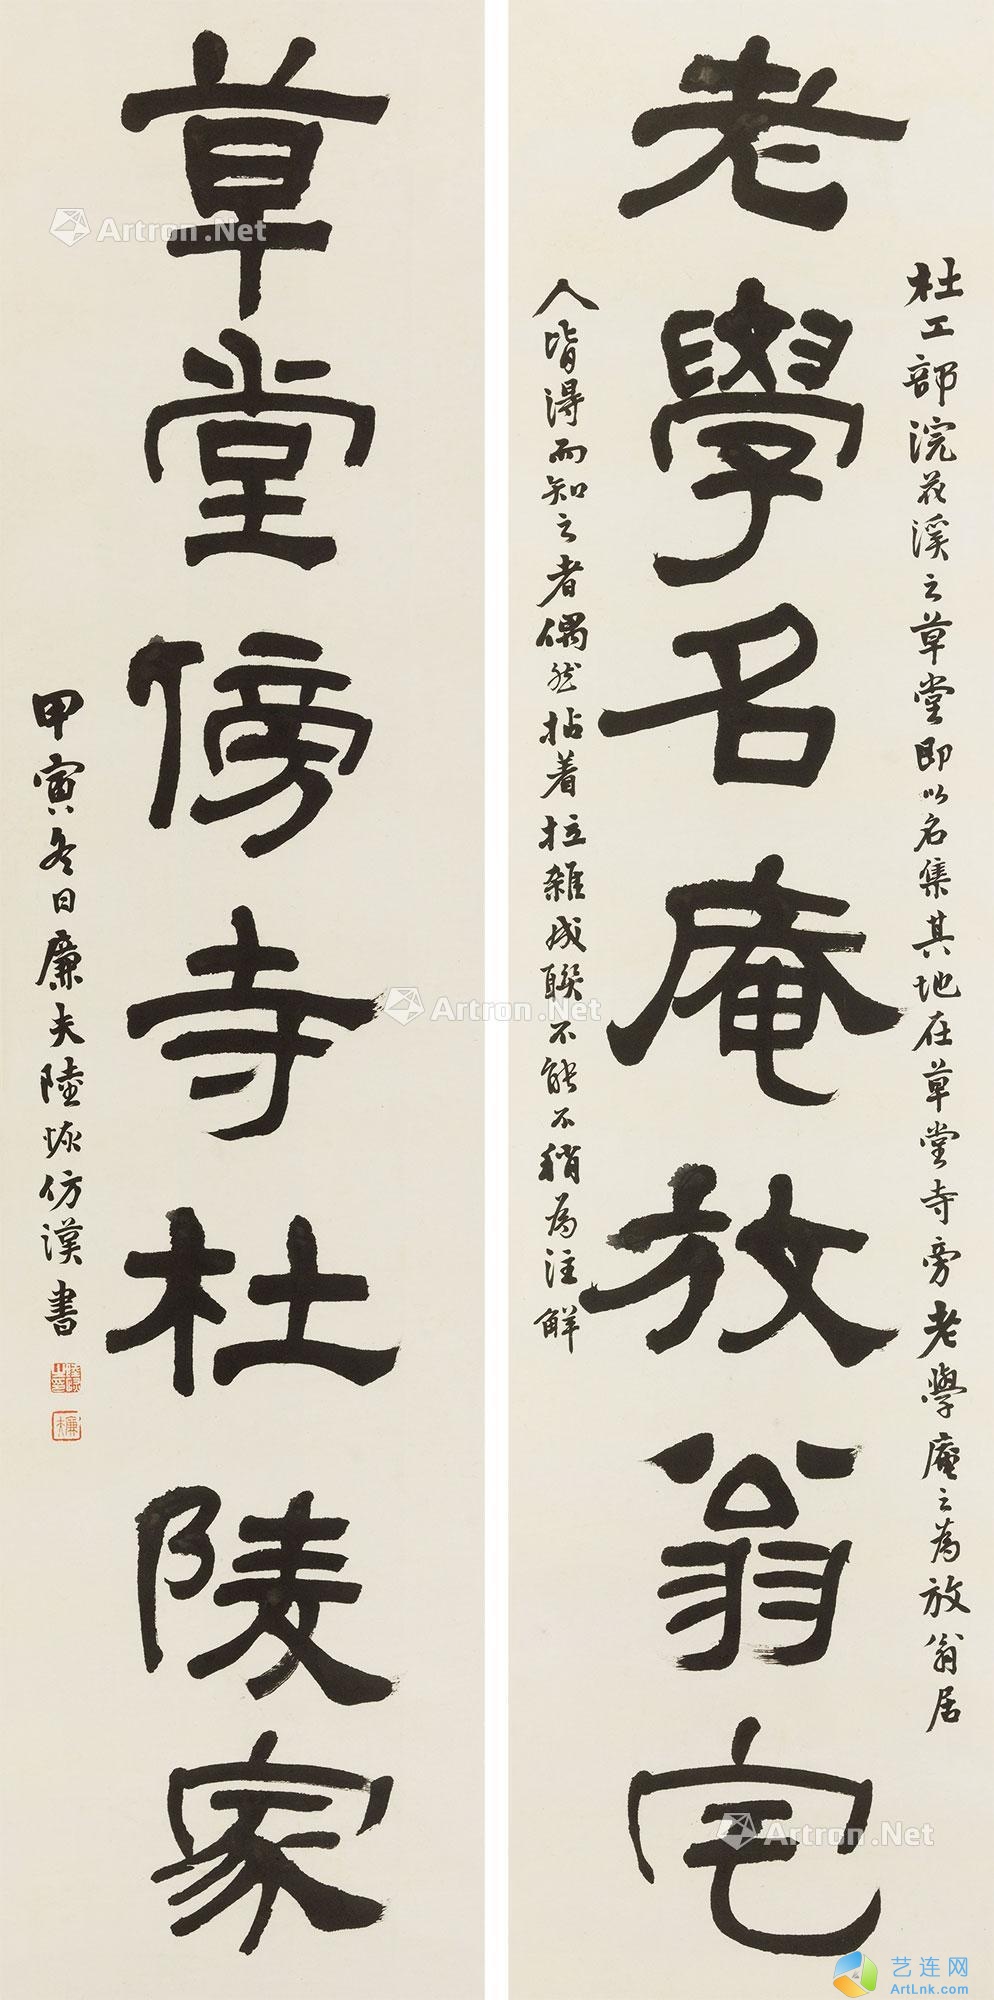 杜工部浣花溪之草堂即以名集其地在草堂寺旁老學庵之為放翁居
老學名庵放翁宅
人皆得而知之者偶然拈着拉雜成聯不能不稍為注解
草堂傍寺杜陵家
甲寅冬日廉夫陸恢仿漢書
Artron.Net
Artron.Net
Artron.Net
艺连网
ArtLnk.com